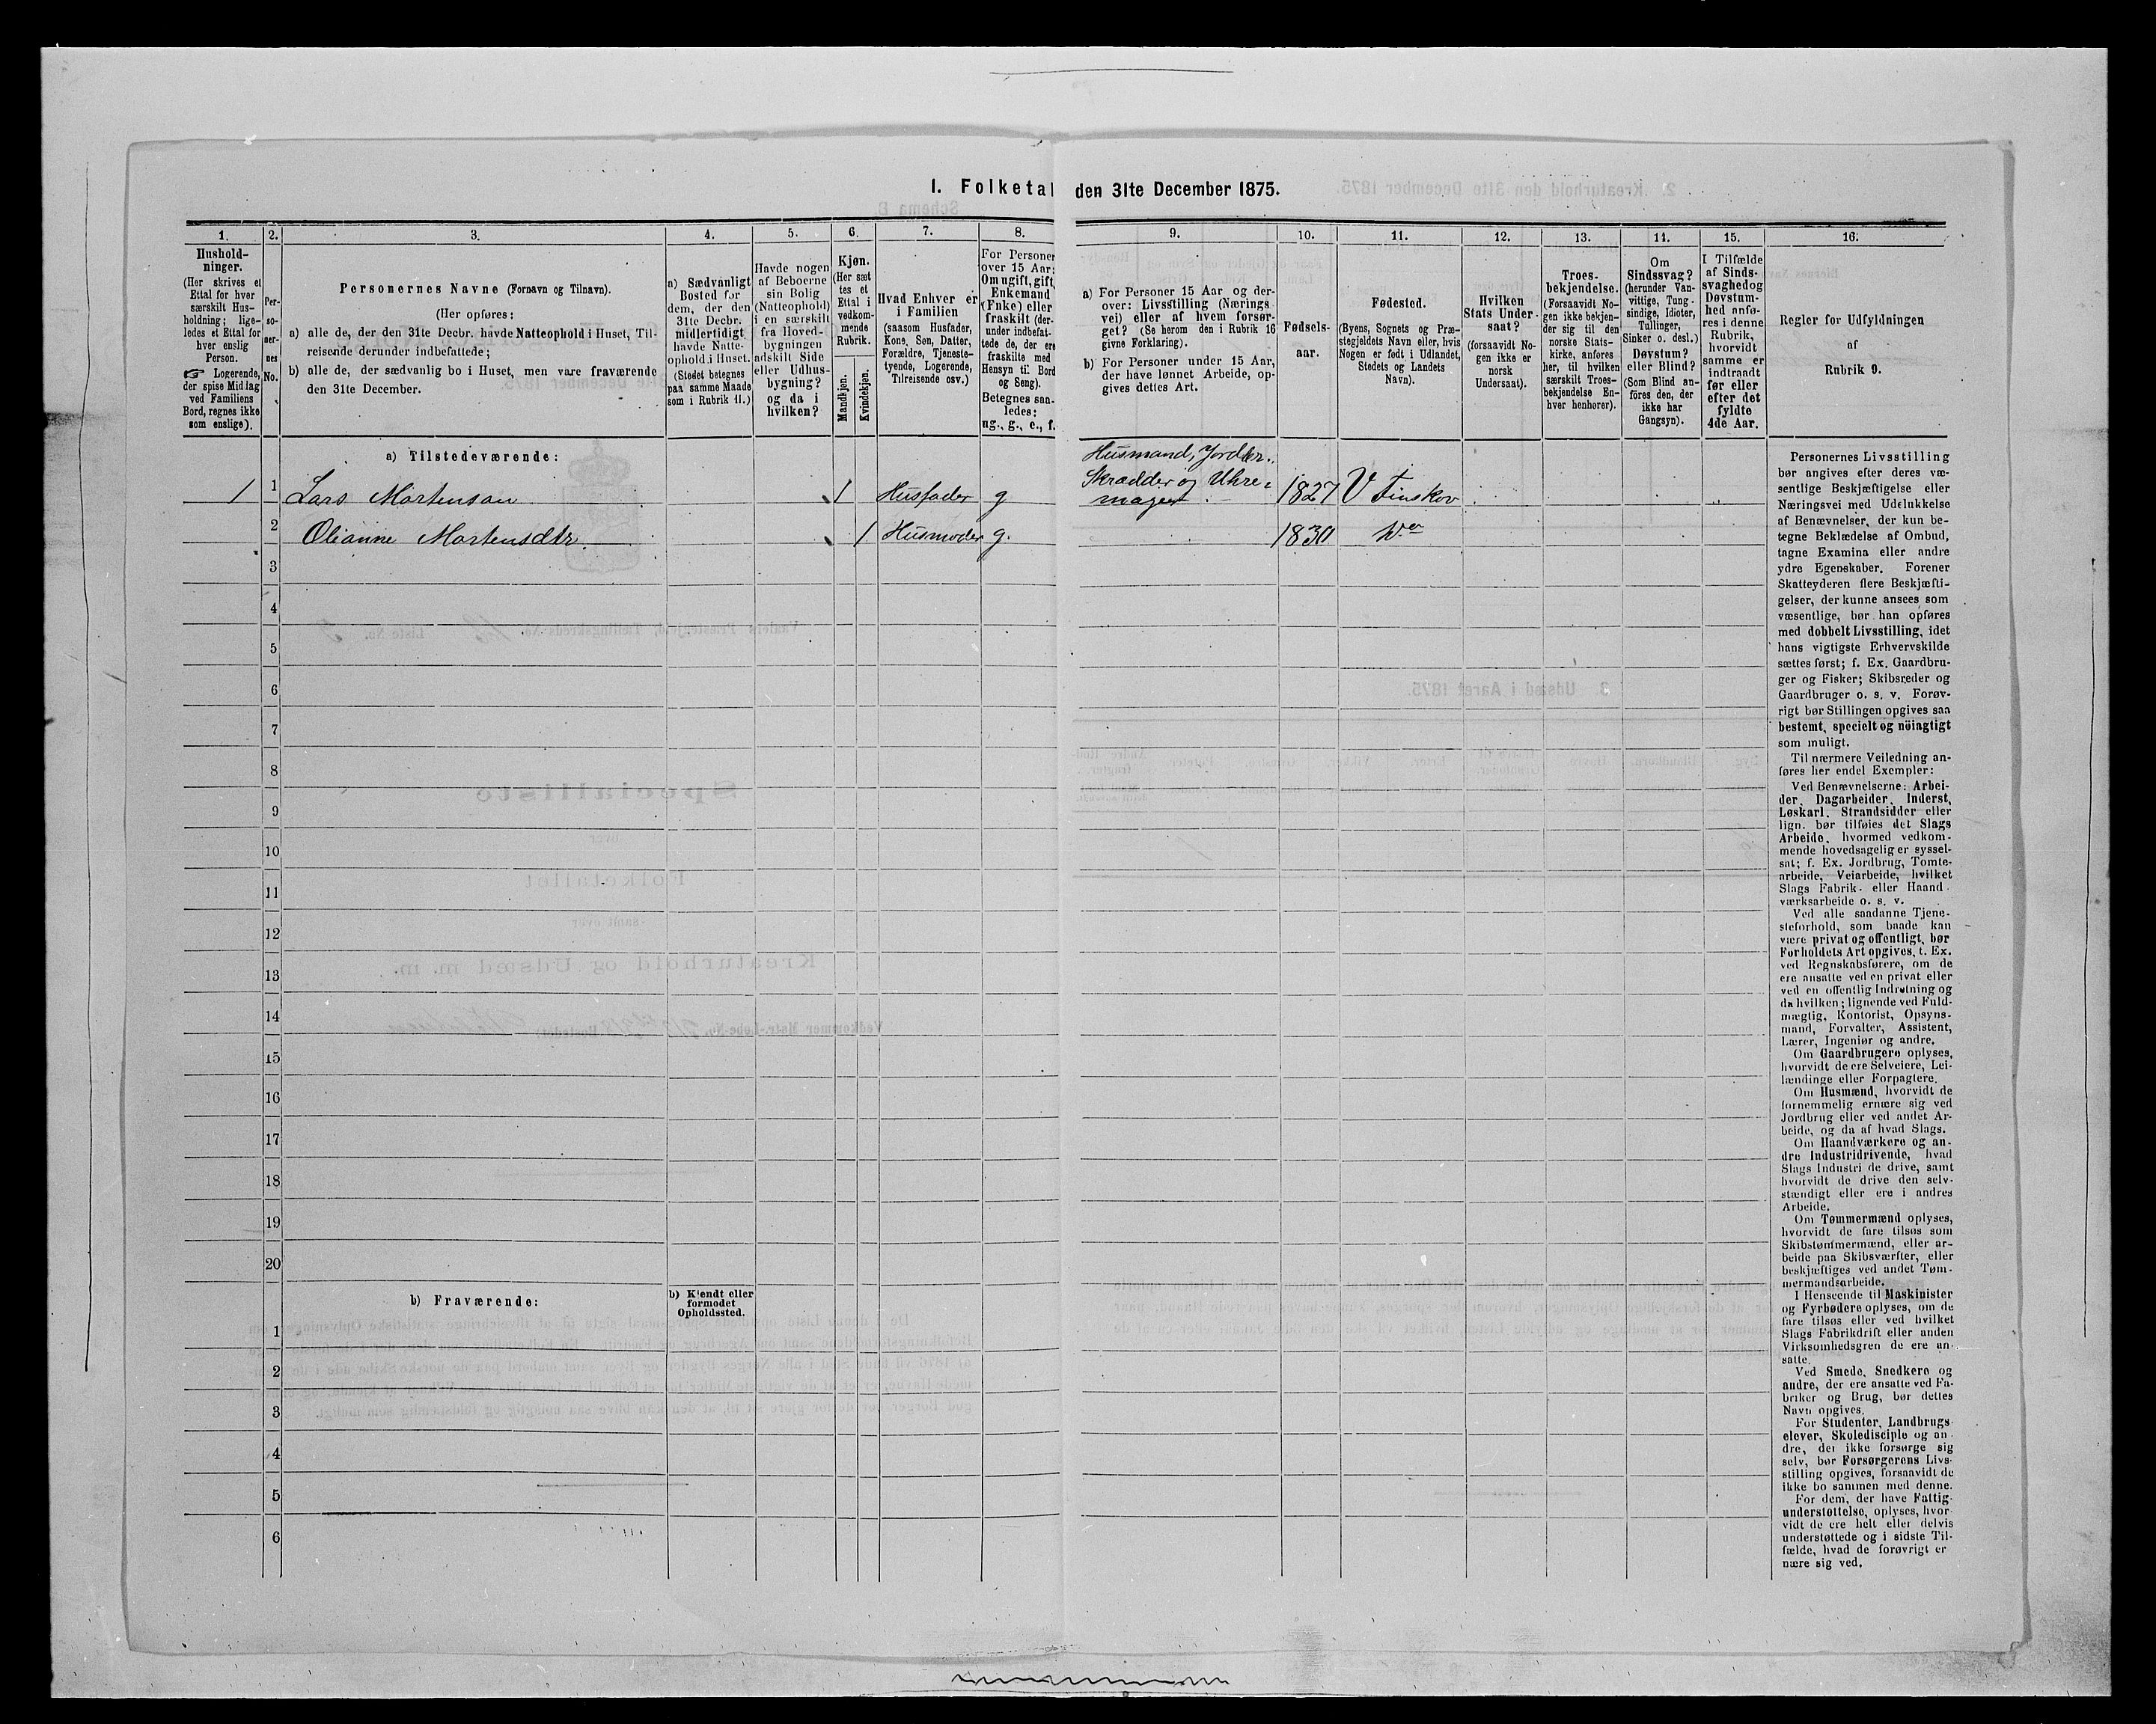 1. Folketal den 31te December 1875.
1.
2.
3.
4.
5.
6.
7.
8.
9.
10.
11.
12.
13.
14.
15.
16.
Hushold-
ninger.
(Her skrives et
Ettal for hver
særskilt Hus-
holdning; lige-
ledes et Ettal for
hver enslig
Person.
☞ Logerende,
der spise Middag
ved Familiens
Bord, regnes ikke
som enslige).
Per-
so-
ner-
nes
No.
Personernes Navne (Fornavn og Tilnavn).
(Her opføres:
a) alle de, der den 31te Decbr. havde Natteophold i Huset, Til-
reisende derunder indbefattede;
b) alle de, der sædvanlig bo i Huset, men vare fraværende
den 31te December.
a) Sædvanligt
Bosted for
dem, der den
31te Decbr.
midlertidigt
havde Natte-
ophold i Huset.
(Stedet betegnes
paa samme Maade
som i Rubrik 11.)
Havde nogen
af Beboerne
sin Bolig
(Natteophold)
i en særskilt
fra Hoved-
bygningen
adskilt Side
eller Udhus-
bygning?
og da i
hvilken?
Kjøn.
(Her sæt-
tes et
Ettal i
vedkom-
mende
Rubrik.
Mandkjøn.
Kvindekjøn.
Hvad Enhver er
i Familien
(saasom Husfader,
Kone, Søn, Datter,
Forældre, Tjeneste-
tyende, Logerende,
Tilreisende osv.)
For Personer
over 15 Aar:
Om ugift, gift,
Enkemand
(Enke) eller
fraskilt (der-
under indbefat-
tede de, der ere
fraskilte med
Hensyn til Bord
og Seng).
Betegnes saa-
ledes:
ug., g., e., f.
a) For Personer 15 Aar og der-
over: Livsstilling (Nærings
vei) eller af hvem forsør-
get? (Se herom den i Rubrik 16
givne Forklaring).
b) For Personer under 15 Aar,
der have lønnet Arbeide, op-
gives dettes Art.
Fødsels-
aar.
Fødested.
(Byens, Sognets og Præ-
stegjeldets Navn eller, hvis
Nogen er født i Udlandet,
Stedets og Landets
Navn).
Hvilken
Stats Under-
saat?
(forsaavidt No-
gen ikke er
norsk
Undersaat).
Troes-
bekjendelse.
(Forsaavidt No-
gen ikke bekjen-
der sig til den
norske Stats-
kirke, anføres
her, til hvilken
særskilt Troes-
bekjendelse En-
hver henhører).
Om
Sindssvag?
(herunder Van-
vittige, Tung-
sindige, Idioter,
Tullinger,
Sinker o. desl.)
Døvstum?
eller Blind?
(Som Blind an-
føres den, der
ikke har
Gangsyn).
I Tilfælde
af Sinds-
svaghed og
Døvstum-
hed anfø-
res i denne
Rubrik,
hvorvidt
samme er
indtraadt
før eller
efter det
fyldte
4de Aar.
Regler for Udfyldningen
af
Rubrik 9.
a) Tilstedeværende:
1 1 Lars Mortensen 1 Husfader g Husmand, Jordbr.
Skrædder og Uhre-
mager 1827 V Finskov
2 Olianne Mortensdtr. 1 Husmoder g. 1830 Do
3
4
5
6
7
8
9
10
11
12
13
14
15
16
17
18
19
20
b) Fraværende:
b) Kjendt eller
formodet
Opholdssted.
1
2
3
4
5
6
Personernes Livsstilling
bør angives efter deres væ-
sentlige Beskjæftigelse eller
Næringsvei med Udelukkelse
af Benævnelser, der kun be-
tegne Beklædelse af Ombud,
tagne Examina eller andre
ydre Egenskaber. Forener
Skatteyderen flere Beskjæfti-
gelser, der kunne ansees som
væsentlige, bør han opføres
med dobbelt Livsstilling, idet
hans vigtigste Erhvervskilde
sættes først; f. Ex. Gaardbru-
ger og Fisker; Skibsreder og
Gaardbruger o. s. v. Forøv-
rigt bør Stillingen opgives saa
bestemt, specielt og nöiagtigt
som muligt.
Til nærmere Veiledning an-
føres her endel Exempler:
Ved Benævnelserne: Arbei-
der, Dagarbeider, Inderst,
Løskarl, Strandsidder eller
lign. bør tilføies det Slags
Arbeide, hvormed vedkom-
mende hovedsagelig er syssel-
sat; f. Ex. Jordbrug, Tomte-
arbeide, Veiarbeide, hvilket
Slags Fabrik- eller Haand-
værksarbeide o. s. v.
Ved alle saadanne Tjene-
steforhold, som baade kan
være privat og offentligt, bør
Forholdets Art opgives, t. Ex.
ved Regnskabsførere, om de
ere ansatte ved en privat eller
ved en offentlig Indretning og
da hvilken; lignende ved Fuld-
mægtig, Kontorist, Opsyns-
mand, Forvalter, Assistent,
Lærer, Ingeniør og andre.
Om Gaardbrugere oplyses,
hvorvidt de ere Selveiere, Lei-
lændinge eller Forpagtere.
Om Husmænd, hvorvidt de
fornemmelig ernære sig ved
Jordbrug eller ved andet Ar-
beide, og da af hvad Slags.
Om Haandværkere og an-
dre Industridrivende, hvad
Slags Industri de drive, samt
hvorvidt de drive den selv-
stændigt eller ere i andres
Arbeide.
Om Tømmermænd oplyses,
hvorvidt de fare tilsøs som
Skibstømmermænd, eller ar-
beide paa Skibsværfter, eller
beskjæftiges ved andet Tøm-
mermandsarbeide.
I Henseende til Maskinister
og Fyrbødere oplyses, om de
fare tilsøs eller ved hvilket
Slags Fabrikdrift eller anden
Virksomhedsgren de ere an-
satte.
Ved Smede, Snedkere og
andre, der ere ansatte ved Fa-
briker og Brug, bør dettes
Navn opgives.
For Studenter, Landbrugs-
elever, Skoledisciple og an-
dre, der ikke forsørge sig
selv, bør Forsørgerens Livs-
stilling opgives, forsaavidt de
ikke bo sammen med denne.
For dem, der have Fattig-
understøttelse, oplyses, hvor-
vidt de ere helt eller delvis
understøttede og i sidste Til-
fælde, hvad de forøvrigt er-
nære sig ved.